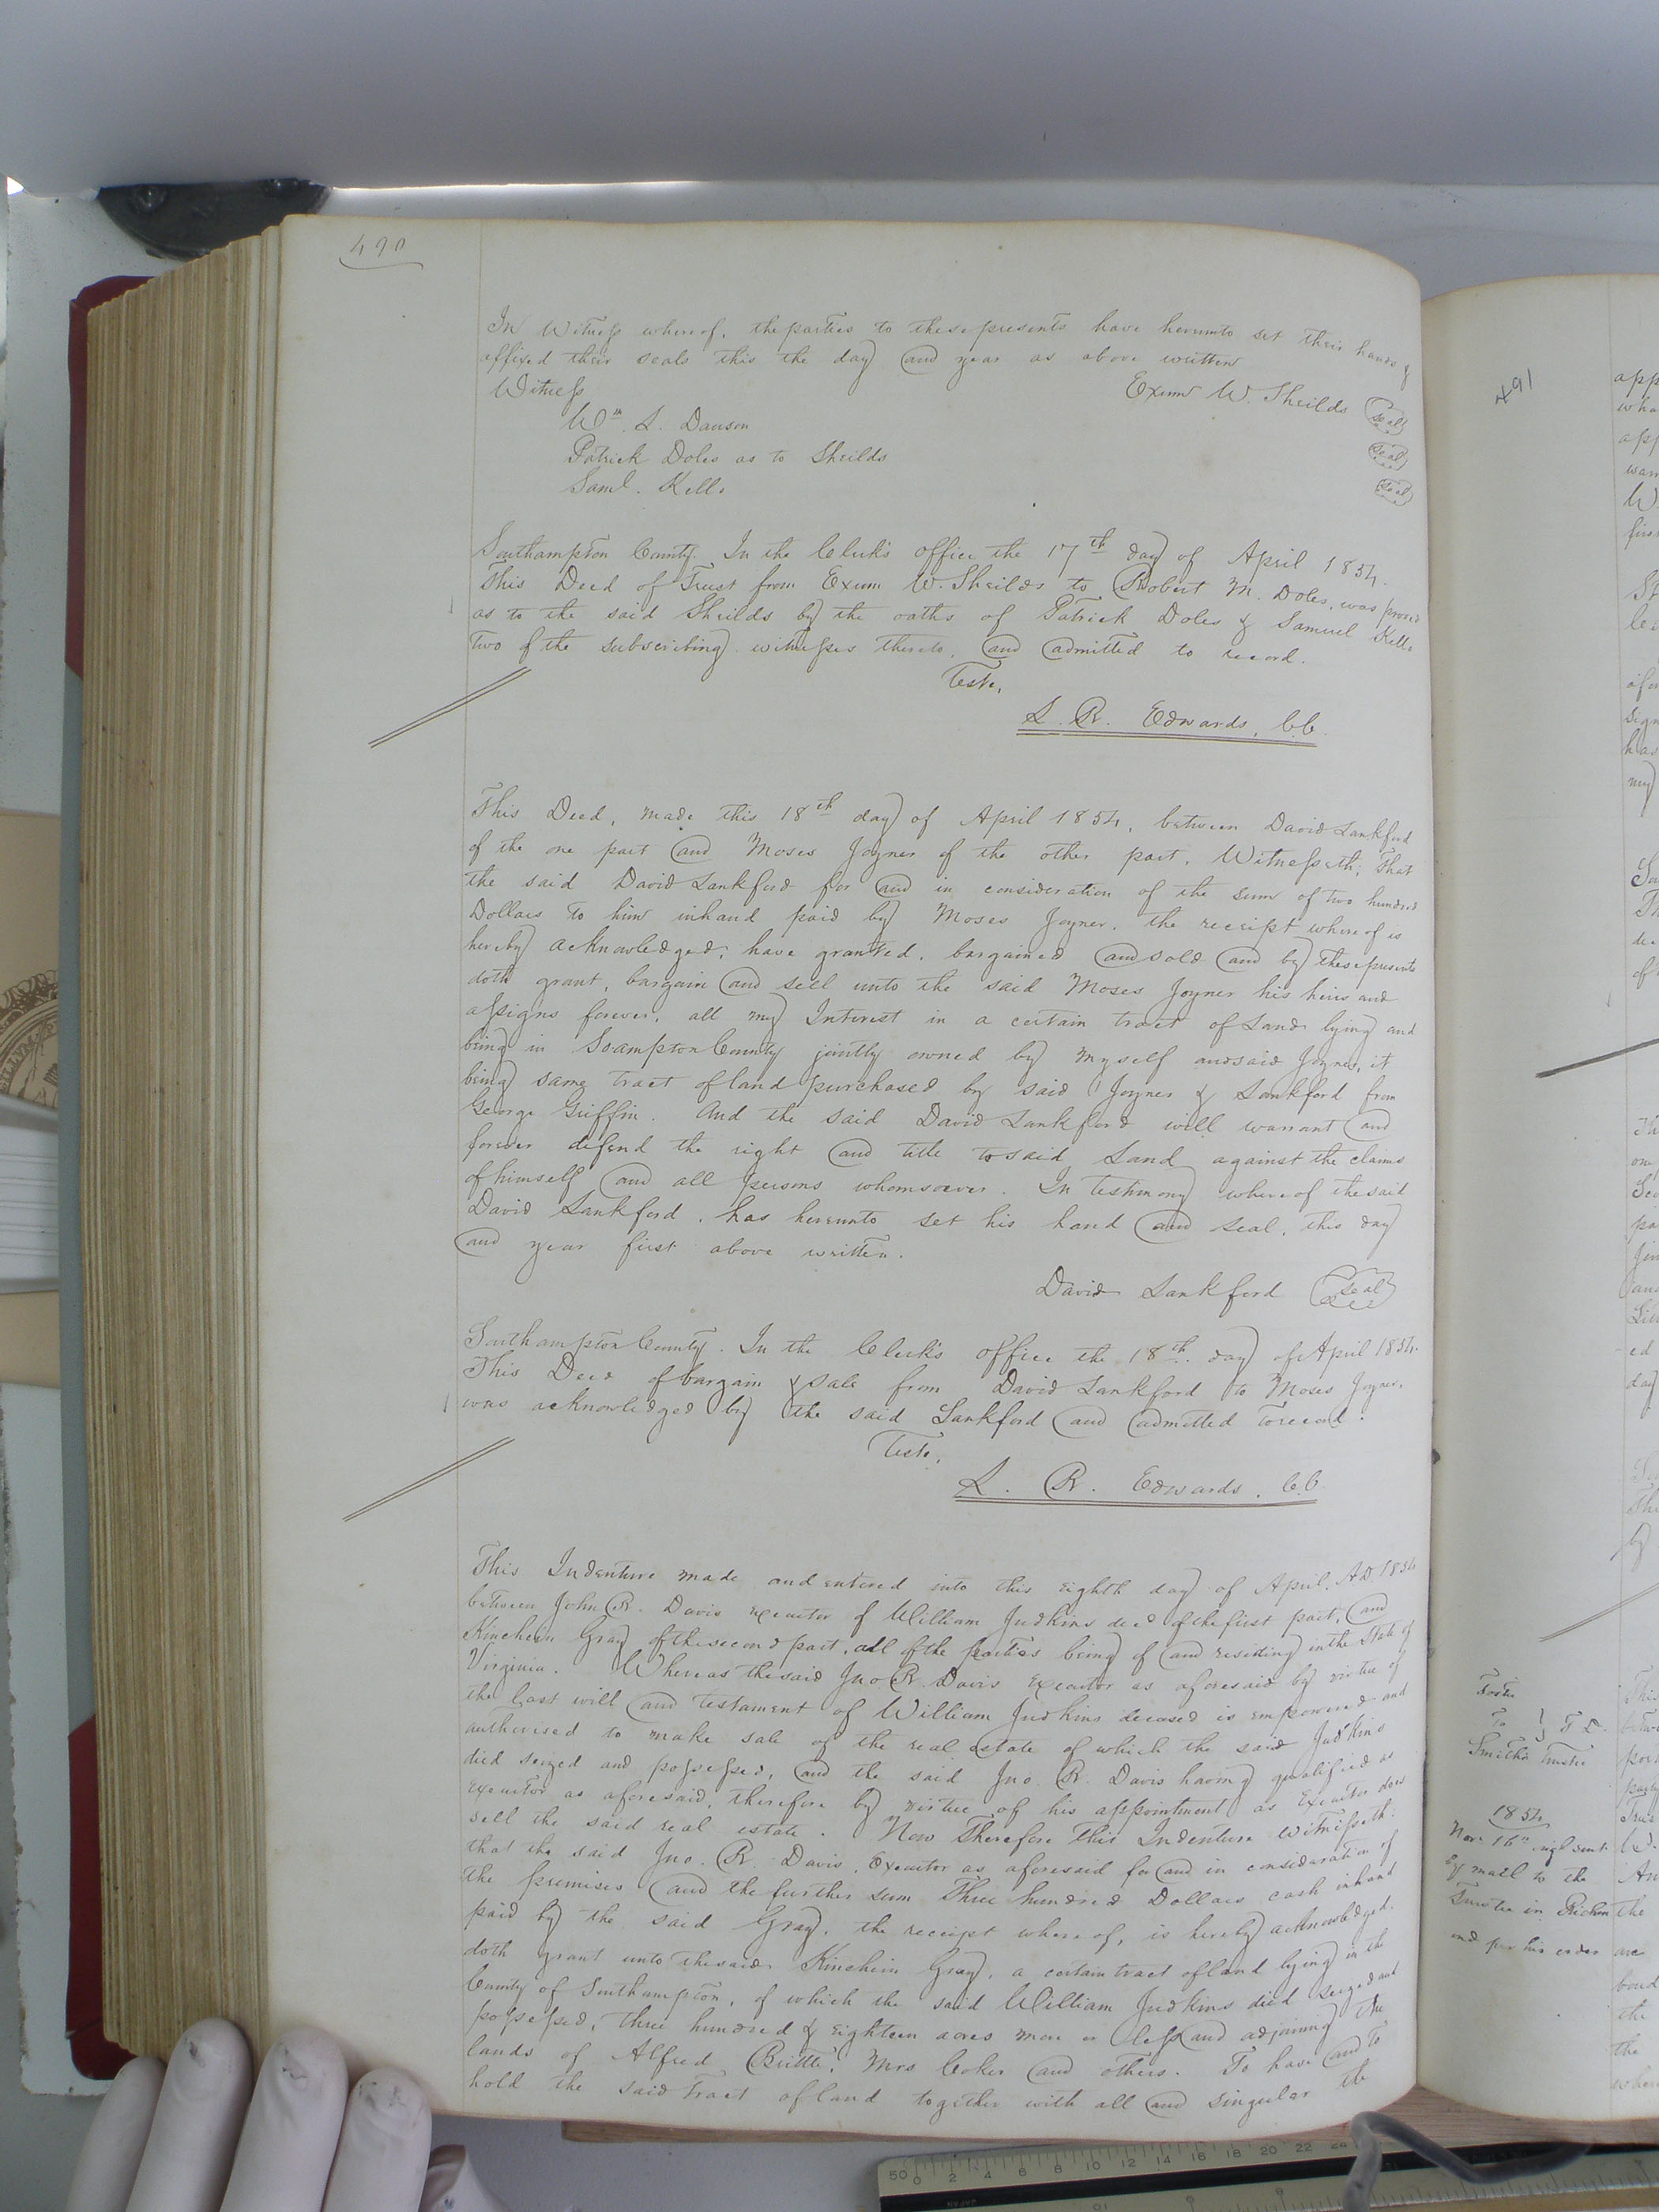 490
In Witness whereof, the parties to these presents have hereunto set their hands &
affixed their seals this the day and year as above written
Witness
Exum W. Sheilds (seal)
Wm. L. Dawson (seal)
Patrick Doles as to Sheilds (seal)
Saml. Kello
Southampton County. In the Clerk's office the 17th day of April 1854.
This Deed of Trust from Exum W. Sheilds to Robert M. Doles, was proved
as to the said Sheilds by the oaths of Patrick Doles & Samuel Kello
two of the subscribing witnesses thereto, and admitted to record.
Teste,
L. R. Edwards, C.C.
This Deed, made this 18th day of April 1854, between David Lankford
of the one part and Moses Joyner of the other part, Witnesseth; That
the said David Lankford for and in consideration of the sum of two hundred
Dollars to him in hand paid by Moses Joyner, the receipt where of is
hereby acknowledged; have granted, bargained and sold and by these presents
doth grant, bargain and sell unto the said Moses Joyner his heirs and
assigns forever, all my Interest in a certain tract of Land lying and
being in Soampton County jointly owned by myself and said Joyner, it
being same tract of land purchased by said Joyner & Lankford from
George Griffin. And the said David Lankford will warrant and
forever defend the right and title to said Land against the claims
of himself and all persons whomsoever. In testimony where of the said
David Lankford, has hereunto set his hand and seal, this day
and year first above written.
David Lankford (seal)
Southampton County. In the Clerk's office the 18th day of April 1854.
This Deed of bargain & sale from David Lankford to Moses Joyner,
was acknowledged by the said Lankford and admitted to record.
Teste,
L. R. Edwards, C.C.
This Indenture made and entered into this eighth day of April, AD 1854
between John R. Davis executor of William Judkins decd of the first part, and
Kinchein Gray of the second part, all of the parties being of and residing in the State of
Virginia. Whereas the said Jno R. Davis Executor as aforesaid by virtue of
the last will and testament of William Judkins deceased is empowered and
authorised to make sale of the real estate of which the said Judkins
died seized and possessed, and the said Jno. R. Davis having qualified as
executor as aforesaid, therefore by virtue of his appointment as Executor does
sell the said real estate. Now Therefore this Indenture witnesseth:
that the said Jno. R. Davis, Executor as aforesaid for and in consideration of
the premises and the further sum Three hundred Dollars cash in hand
paid by the said Gray, the receipt where of, is hereby acknowledged.
doth grant unto the said Kinchein Gray, a certain tract of land lying in the
County of Southampton, of which the said William Judkins died seized and
possessed, three hundred & eighteen acres more or less and adjoining the
lands of Alfred Britte, Mrs Coker and others. To have and to
hold the said tract of land together with all and singular the
491
To
Smith's Trustee
T. D.
1854
Nov. 16th
by mail to the
Trustee in Richm
and per his order
50 0 2 4 6 8 10 12 14 16 18 20 22 24
JAPAN